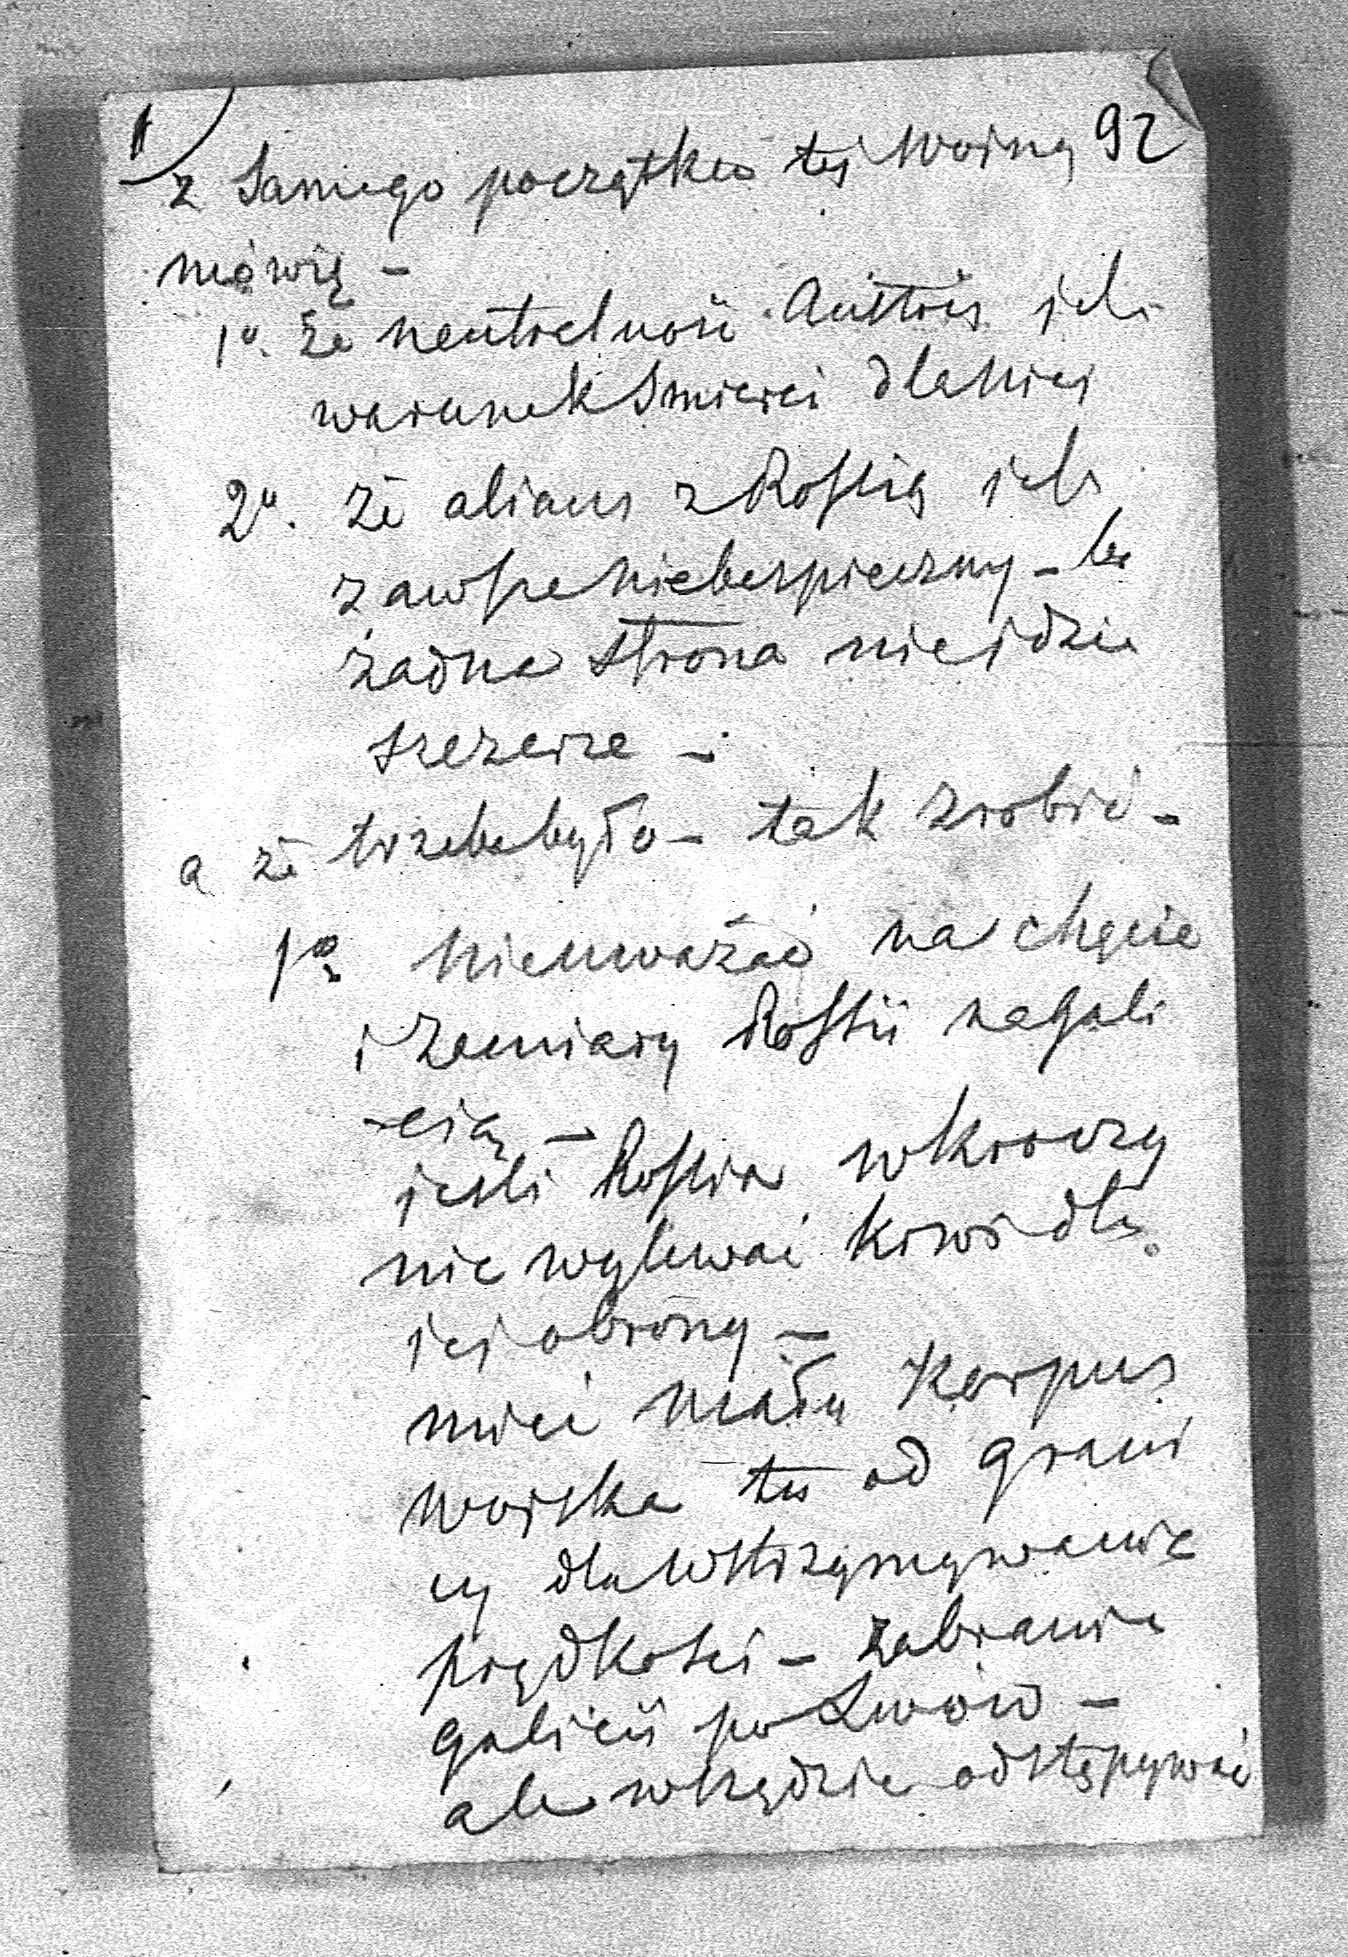 92
z Samego początku tej Woiny
mówię -
1º. że neutralność Austrii jest
warunek Smierci dla Niei
2º. że alians z Rossią jest
zawsze Niebezpieczny - bo
żadna strona nie idzie
szczerze -
a że trzeba było - tak zrobić -
1º. Nieuważać na chęcie
i zamiary Rossii na Gali
-cią -
jeśli Rossia wkroczy
nie wylewać krwi dla
jej obrony -
mieć mały Korpus
woiska tu od grani
cy dla Wstrzymywania
prędkości - zabrania
Galicii po Lwów -
ale wszędzie odstępywać